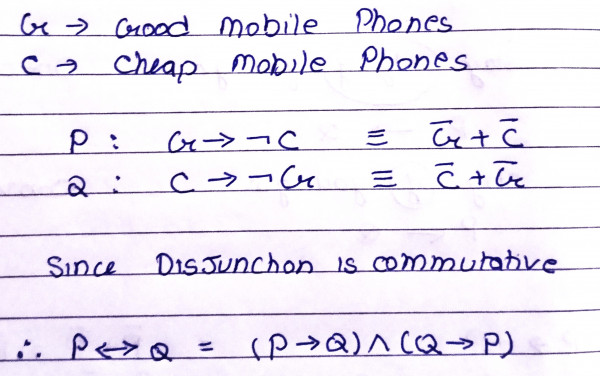 G → Good mobile Phones
C → Cheap mobile Phones
P : G → ¬ C ≡ G̅ + C̅
Q : C → ¬ G ≡ C̅ + G̅
Since Disjunction is commutative
∴ P ↔ Q = (P → Q) ∧ (Q → P)